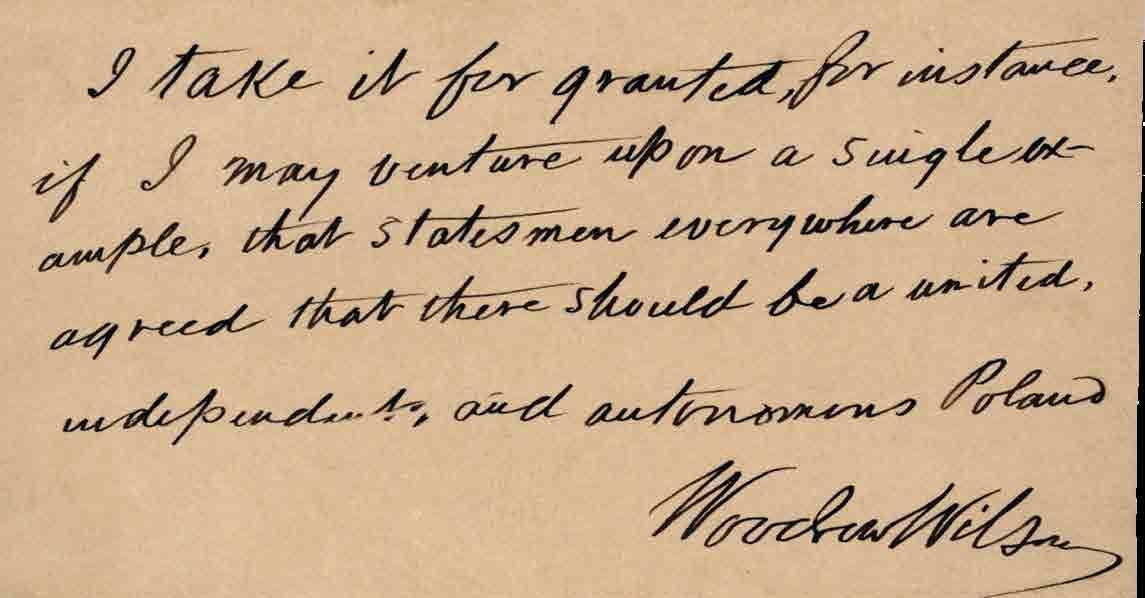 I take it for granted, for instance,
if I may venture upon a single ex-
ample, that statesmen everywhere are
agreed that there should be a united,
independent, and autonomous Poland
Woodrow Wilson